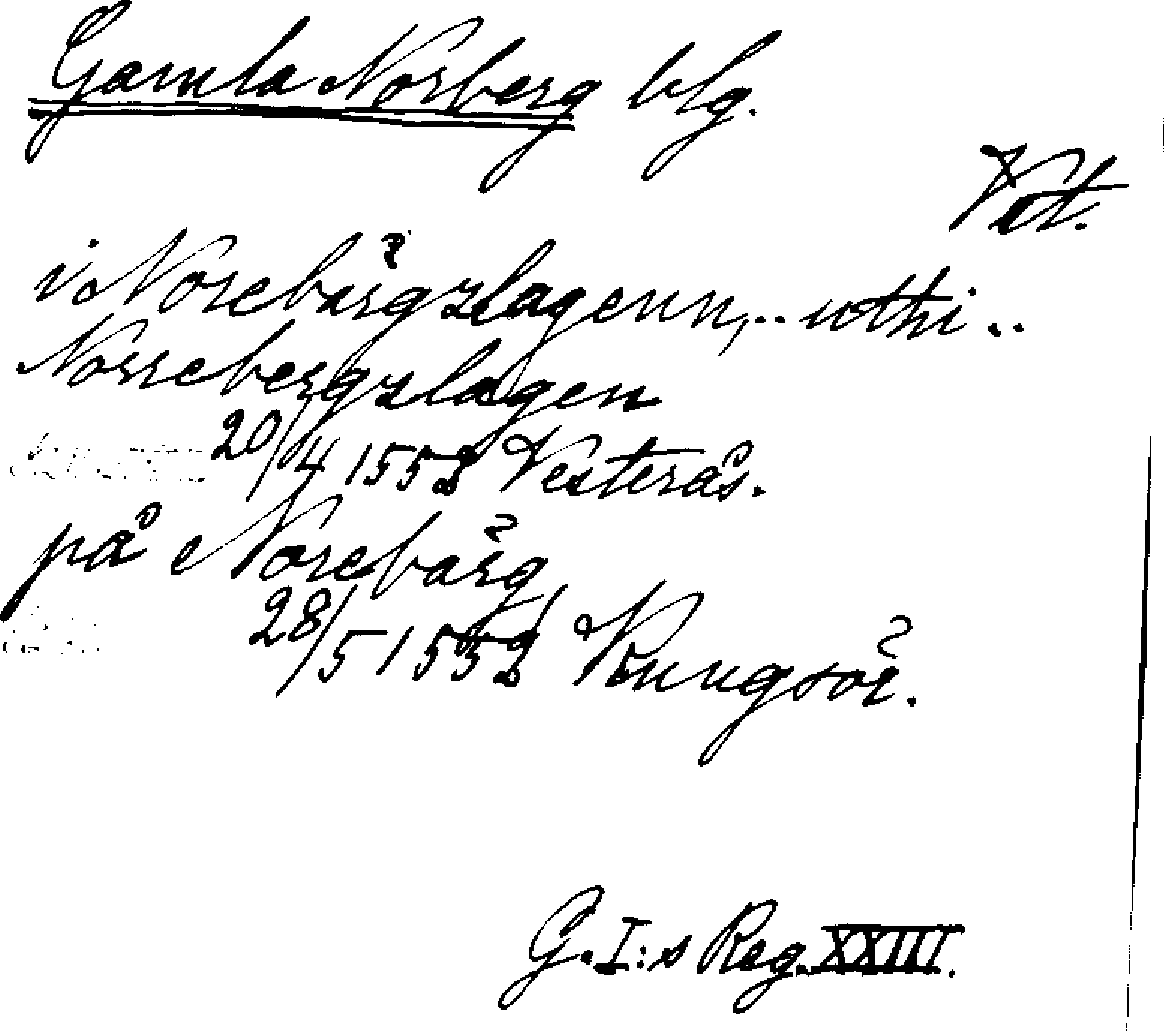 Gamla Norberg blg.
Vst.
i Norebärgzlagenn,.. uthi..
Norrebergzlagen
20/4 1552 Vesterås.
på Norebärg
28/5 1552 Kungsör.
G.I:s Reg. XXIII.